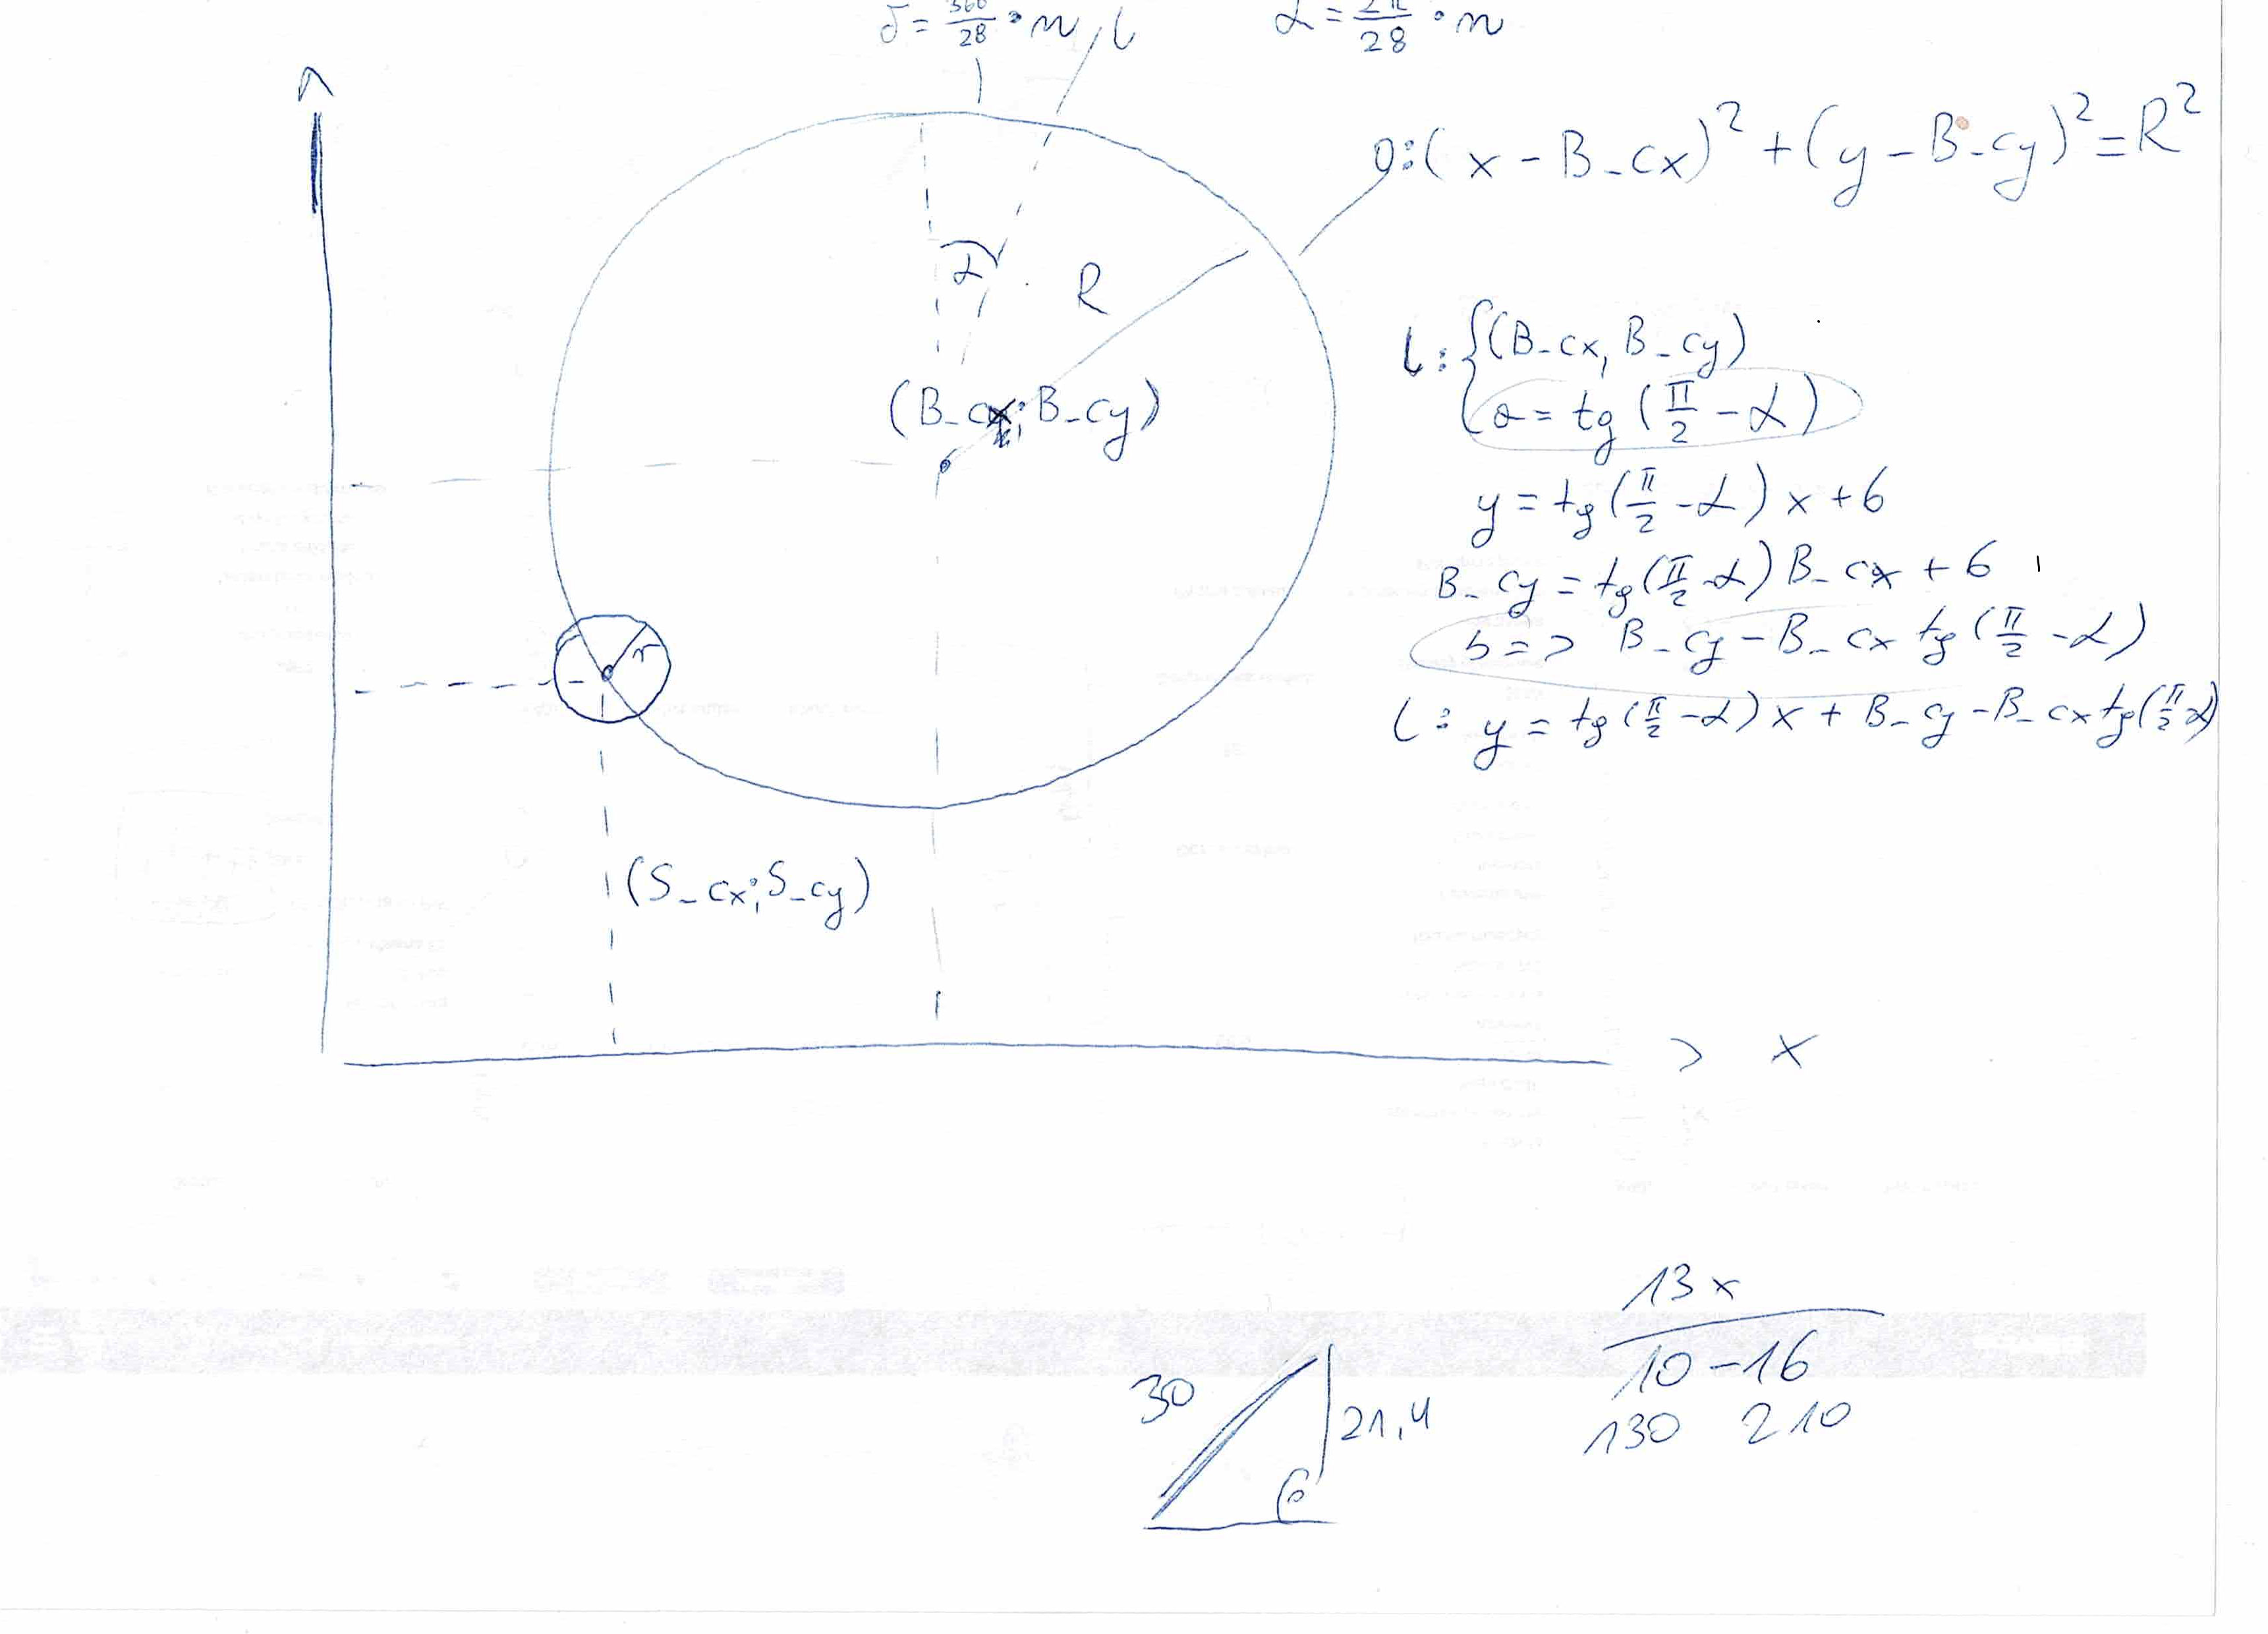 δ = 360/28 • n
l
α = 2π/28 • n
O: (x - B_cx)² + (y - B_cy)² = R²
α
R
(B_cx; B_cy)
l: {(B_cx, B_cy)
a = tg (π/2 - α)
y = tg (π/2 - α) x + b
B_cy = tg (π/2 - α) B_cx + b
b => B_cy - B_cx tg (π/2 - α)
l: y = tg (π/2 - α) x + B_cy - B_cx tg (π/2 - α)
r
(S_cx; S_cy)
> x
13x
10 - 16
130 210
30
21,4